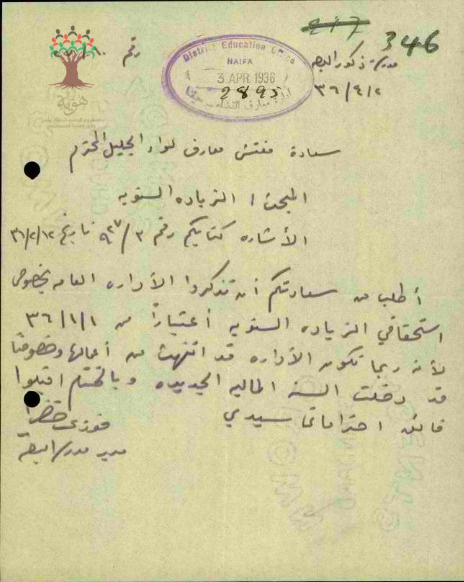 346
رقم
مدرسة ذكور البصه
٣٦/٤/٢
District Education Office
HAIFA
3 APR 1936
2895
هوية
سعادة مفتش معارف لواء الجليل المحترم
المبحث / الزياده السنويه
الأشاره كتابكم رقم ٣/ تاريخ ٣٦/٢/١٢
أطلب من سعادتكم أن تذكروا الأداره العامه بخصوص
استحقاقي الزياده السنويه أعتباراً من ٣٦/١/١
لأنه ربما تكون الأداره قد انتهت من أعمالها وخصوصاً
قد دخلت السنه الماليه الجديده وبالختام اقبلوا
فائق احتراماتي سيدي
فوزي خضرا
مدير مدرسة البصه